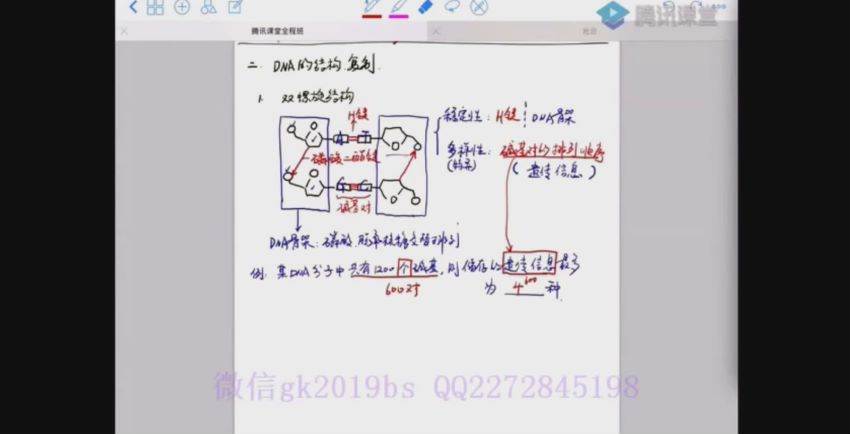 腾讯课堂
腾讯课堂全程班
社会
二. DNA的结构.复制.
1. 双螺旋结构
H键
稳定性: H键 DNA骨架
A T
磷酸二酯键
多样性: 碱基对的排列顺序
(特异)
(遗传信息)
G C
碱基对
DNA骨架: 磷酸.脱氧核糖交替排列
例. 某DNA分子中共有1200个碱基, 则储存的遗传信息最多
600对
为 4^600 种
微信gk2019bs QQ2272845198